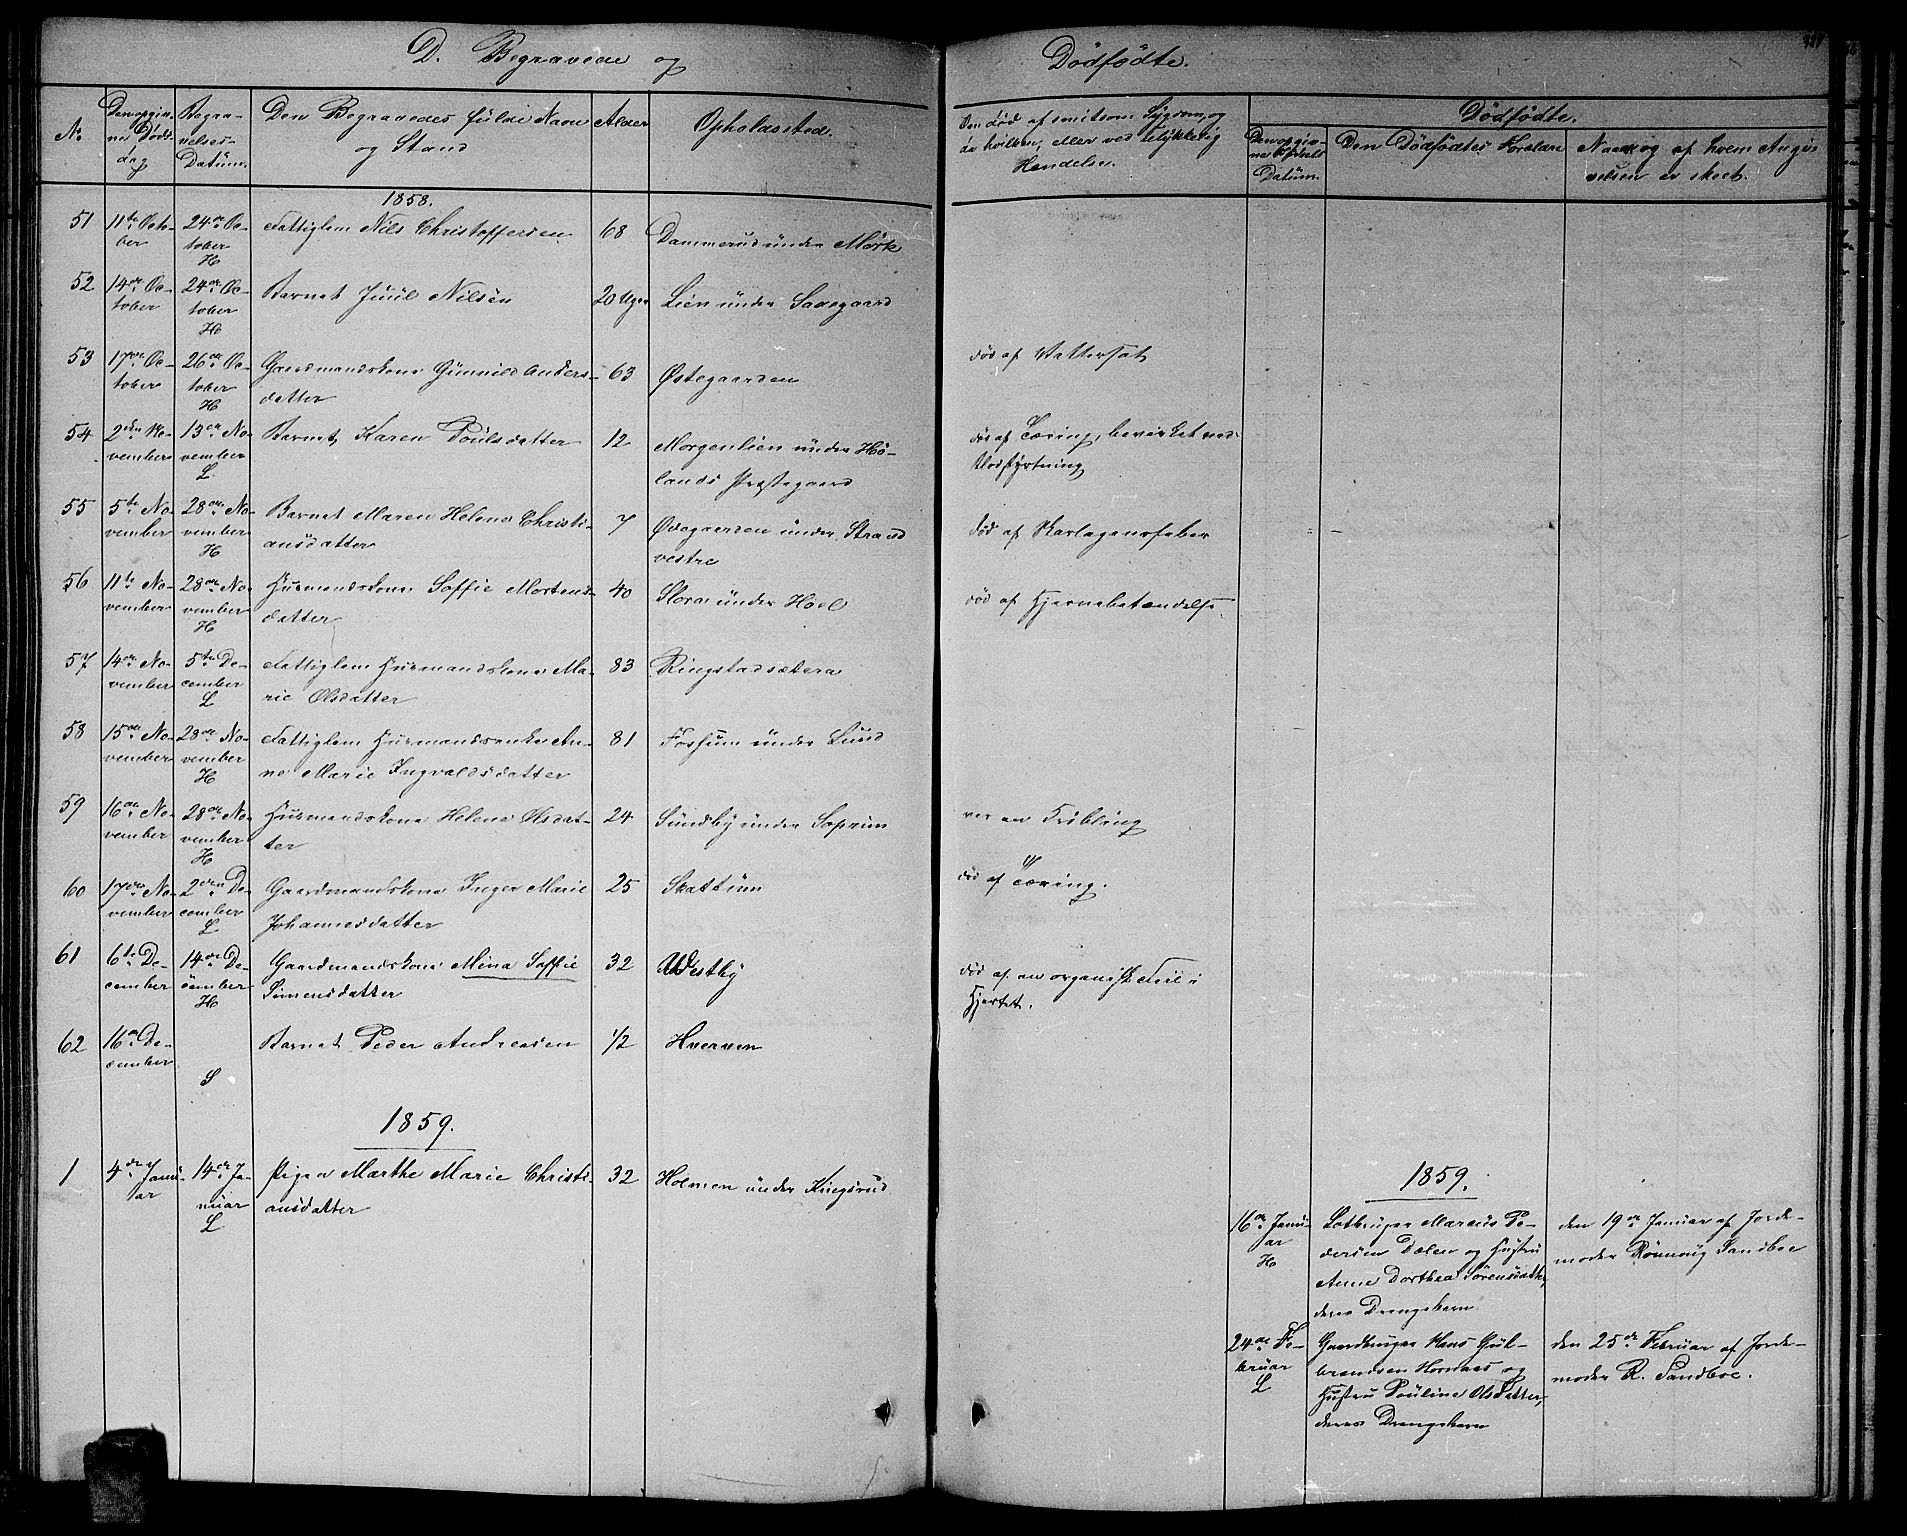 D. Begravede og Dødfødte.
No.
Den opgivne Døds dag
Begravelses-Datum.
Den Begravedes fulde Navn og Stand
Alder
Opholdssted.
Om død af smitsom Sygdom, og da hvilken, eller ved Ulykkelig Hændelse.
Dødfødte.
Den opgivne Fødsels Datum.
Den Dødfødtes Forældre
Naar og af hvem Angivelsen er skeet.
1858.
51 11te October 24de October H Fattiglem Nils Christoffersen 68 Dammerud under Mørk
52 14de October 24de October H Barnet Juul Nilsen 20 Uger Lien under Savegaard
53 17de October 26de October H Gaardmandskone Gunnild Andersdatter 63 Østegaarden død af Vattersot
54 2den November 13de November L Barnet Karen Poulsdatter 12 Morgenlien under Hølands Præstegaard død af Tæring, bevirket ved Blodstyrtning
55 5te November 28de November H Barnet Maren Helene Christiansdatter 7 Ødegaarden under Strand vestre død af Skarlagensfeber
56 11te November 28de November H Husmandskone Soffie Mortensdatter 40 Slora under Hoel død af Hjernebetændelse
57 14de November 5te December L Fattiglem Husmandskone Marie Olsdatter 83 Ringstadsætera
58 15de November 28de November H Fattiglem Husmandsenke Anne Marie Ingvaldsdatter 81 Fossum under Lund
59 16de November 28de November H Husmandskone Helene Olsdatter 24 Sundby under Soprim var en Tvibling
60 17de November 2den December L Gaardmandskone Inger Marie Johannesdatter 25 Skattum død af Tæring.
61 6te December 14de December H Gaardmandskone Mina Soffie Simensdatter 32 Westby død af en organisk Feil i Hjertet.
62 16de December S Barnet Peder Andreasen 1/2 Hverven
1859.
1 4de Januar 14de Januar L Pigen Marthe Marie Christiansdatter 32 Holmen under Kingsrud
1859.
16de Januar H Lotbruger Marcus Pedersen Dælen og Hustru Anne Dorthea Sørensdatter, deres Drengebarn den 19de Januar af Jordemoder Rønnoug Sandboe
24de Februar L Gaardbruger Hans Gulbrandsen Hornaas og Hustru Pouline Olsdatter, deres Drengebarn den 25de Februar af Jordemoder R. Sandboe.